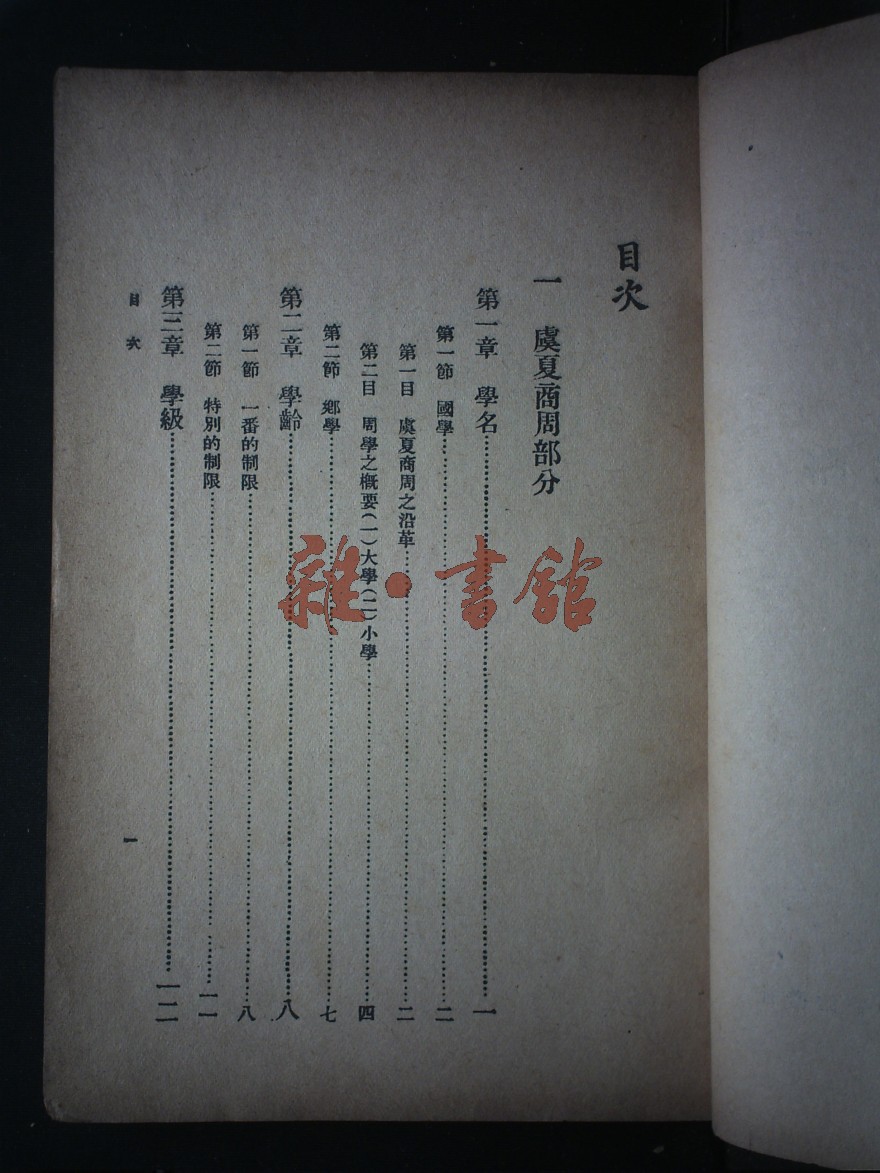 目次
一　虞夏商周部分
第一章　學名……一
第一節　國學……二
第一目　虞夏商周之沿革……二
第二目　周學之概要（一）大學（二）小學……四
第二節　鄉學……七
第二章　學齡……八
第一節　一番的制限……八
第二節　特別的制限……一一
第三章　學級……一二
目次
一
雜·書館